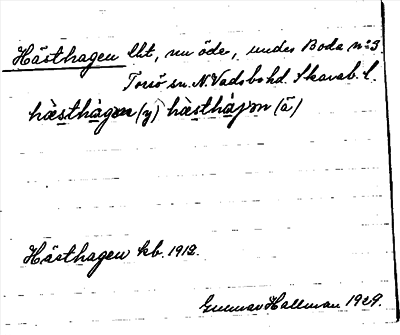 Hästhagen lht, nu öde, under Boda n:o 3
Torsö sn. N. Vadsbo hd. Skarab. l.
hästhagen (y) hästhajm (ä)
Hästhagen kb. 1912.
Gunnar Hallman 1929.